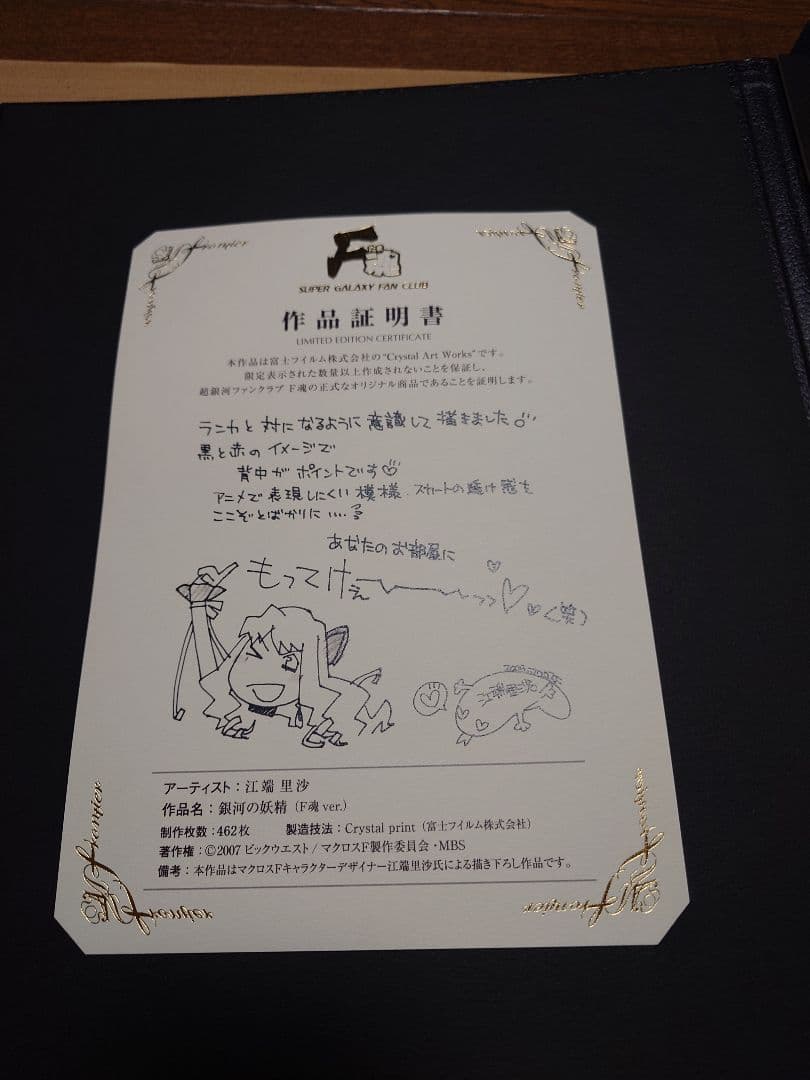 F魂
SUPER GALAXY FAN CLUB
作品証明書
LIMITED EDITION CERTIFICATE
本作品は富士フイルム株式会社の"Crystal Art Works"です。
限定表示された数量以上作成されないことを保証し、
超銀河ファンクラブ F魂の正式なオリジナル商品であることを証明します。
ランカと対になるように意識して描きました
黒と赤のイメージで
背中がポイントです
アニメで表現しにくい模様、スカートの透け感を
ここぞとばかりに....
あなたのお部屋に
もってけぇーーーっっ
(笑)
江端里沙
アーティスト：江端 里沙
作品名：銀河の妖精（F魂 ver.）
制作枚数：462枚 製造技法：Crystal print（富士フイルム株式会社）
著作権：©2007 ビックウエスト / マクロスF製作委員会・MBS
備考：本作品はマクロスFキャラクターデザイナー江端里沙氏による描き下ろし作品です。
frontier
frontier
frontier
frontier